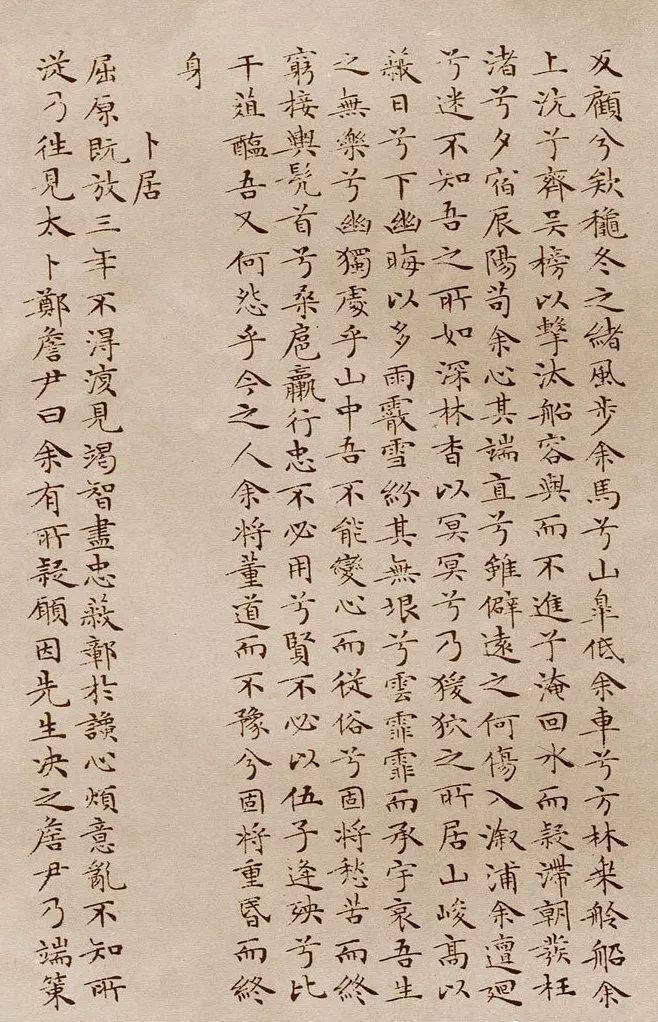 反顧兮欸穐冬之緒風步余馬兮山皐低余車兮方林椉舲船余
上沅兮齊吴榜以擊汰船容與而不進兮淹回水而疑滯朝發枉
渚兮夕宿辰陽苟余心其端直兮雖僻遠之何傷入溆浦余邅迴
兮迷不知吾之所如深林杳以冥冥兮乃猨狖之所居山峻高以
蔽日兮下幽晦以多雨霰雪紛其無垠兮雲霏霏而承宇哀吾生
之無樂兮幽獨處乎山中吾不能變心而従俗兮固將愁苦而終
窮接輿髡首兮桑扈臝行忠不必用兮賢不必以伍子逢殃兮比
干菹醢吾又何怨乎今之人余將董道而不豫兮固將重昏而終
身
卜居
屈原既放三年不得復見竭智盡忠蔽鄣於讒心煩意亂不知所
従乃往見太卜鄭詹尹曰余有所疑願因先生决之詹尹乃端策